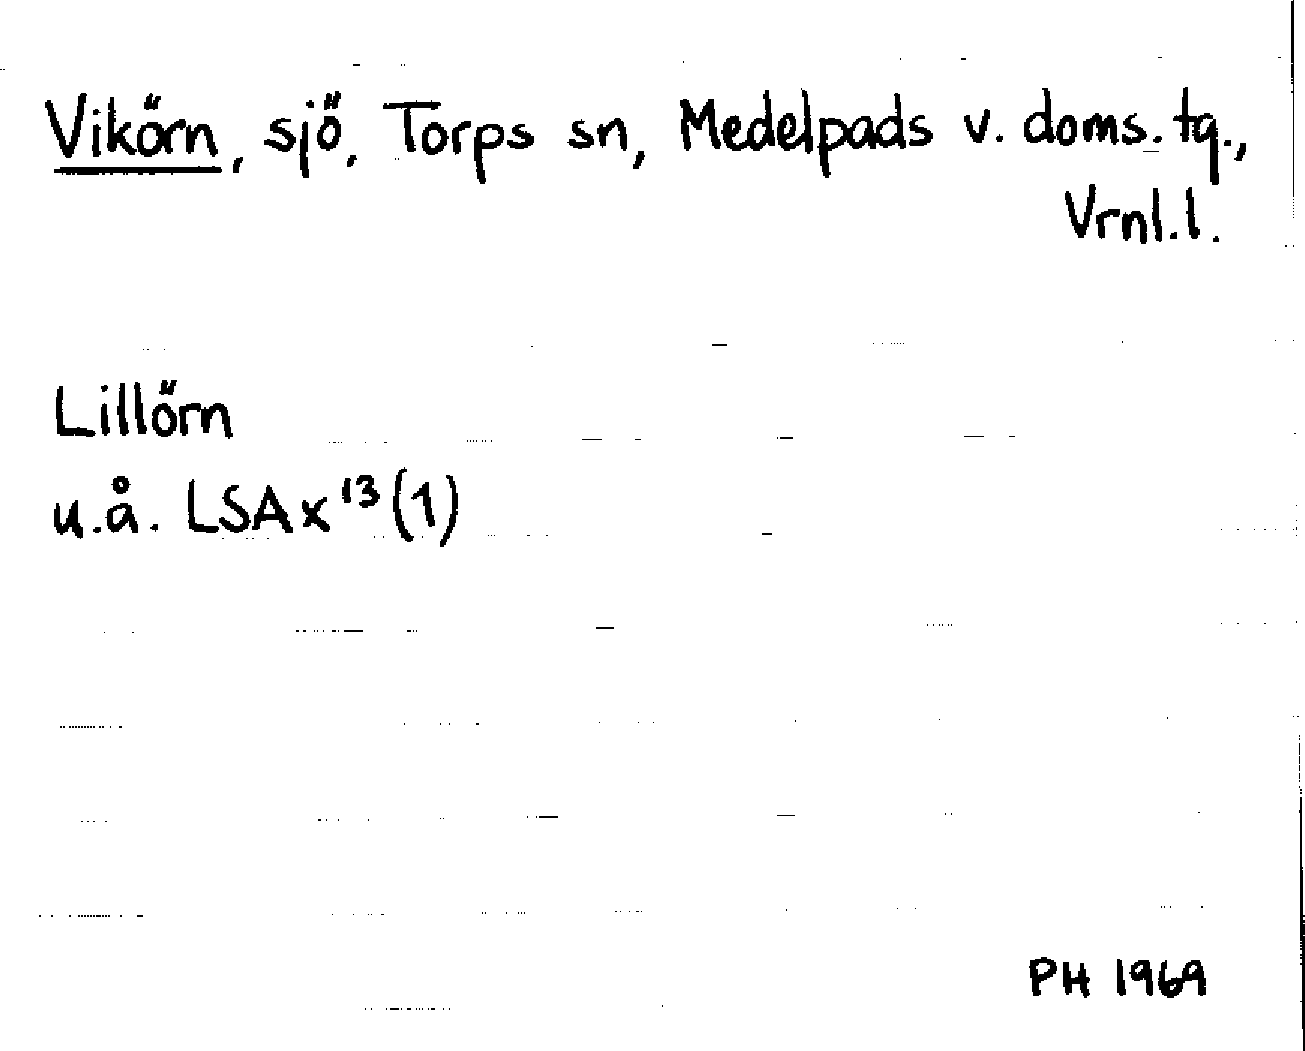 Vikörn, sjö, Torps sn, Medelpads v. doms. tg.,
Vrnl. l.
Lillörn
u.å. LSA x¹³(1)
PH 1969